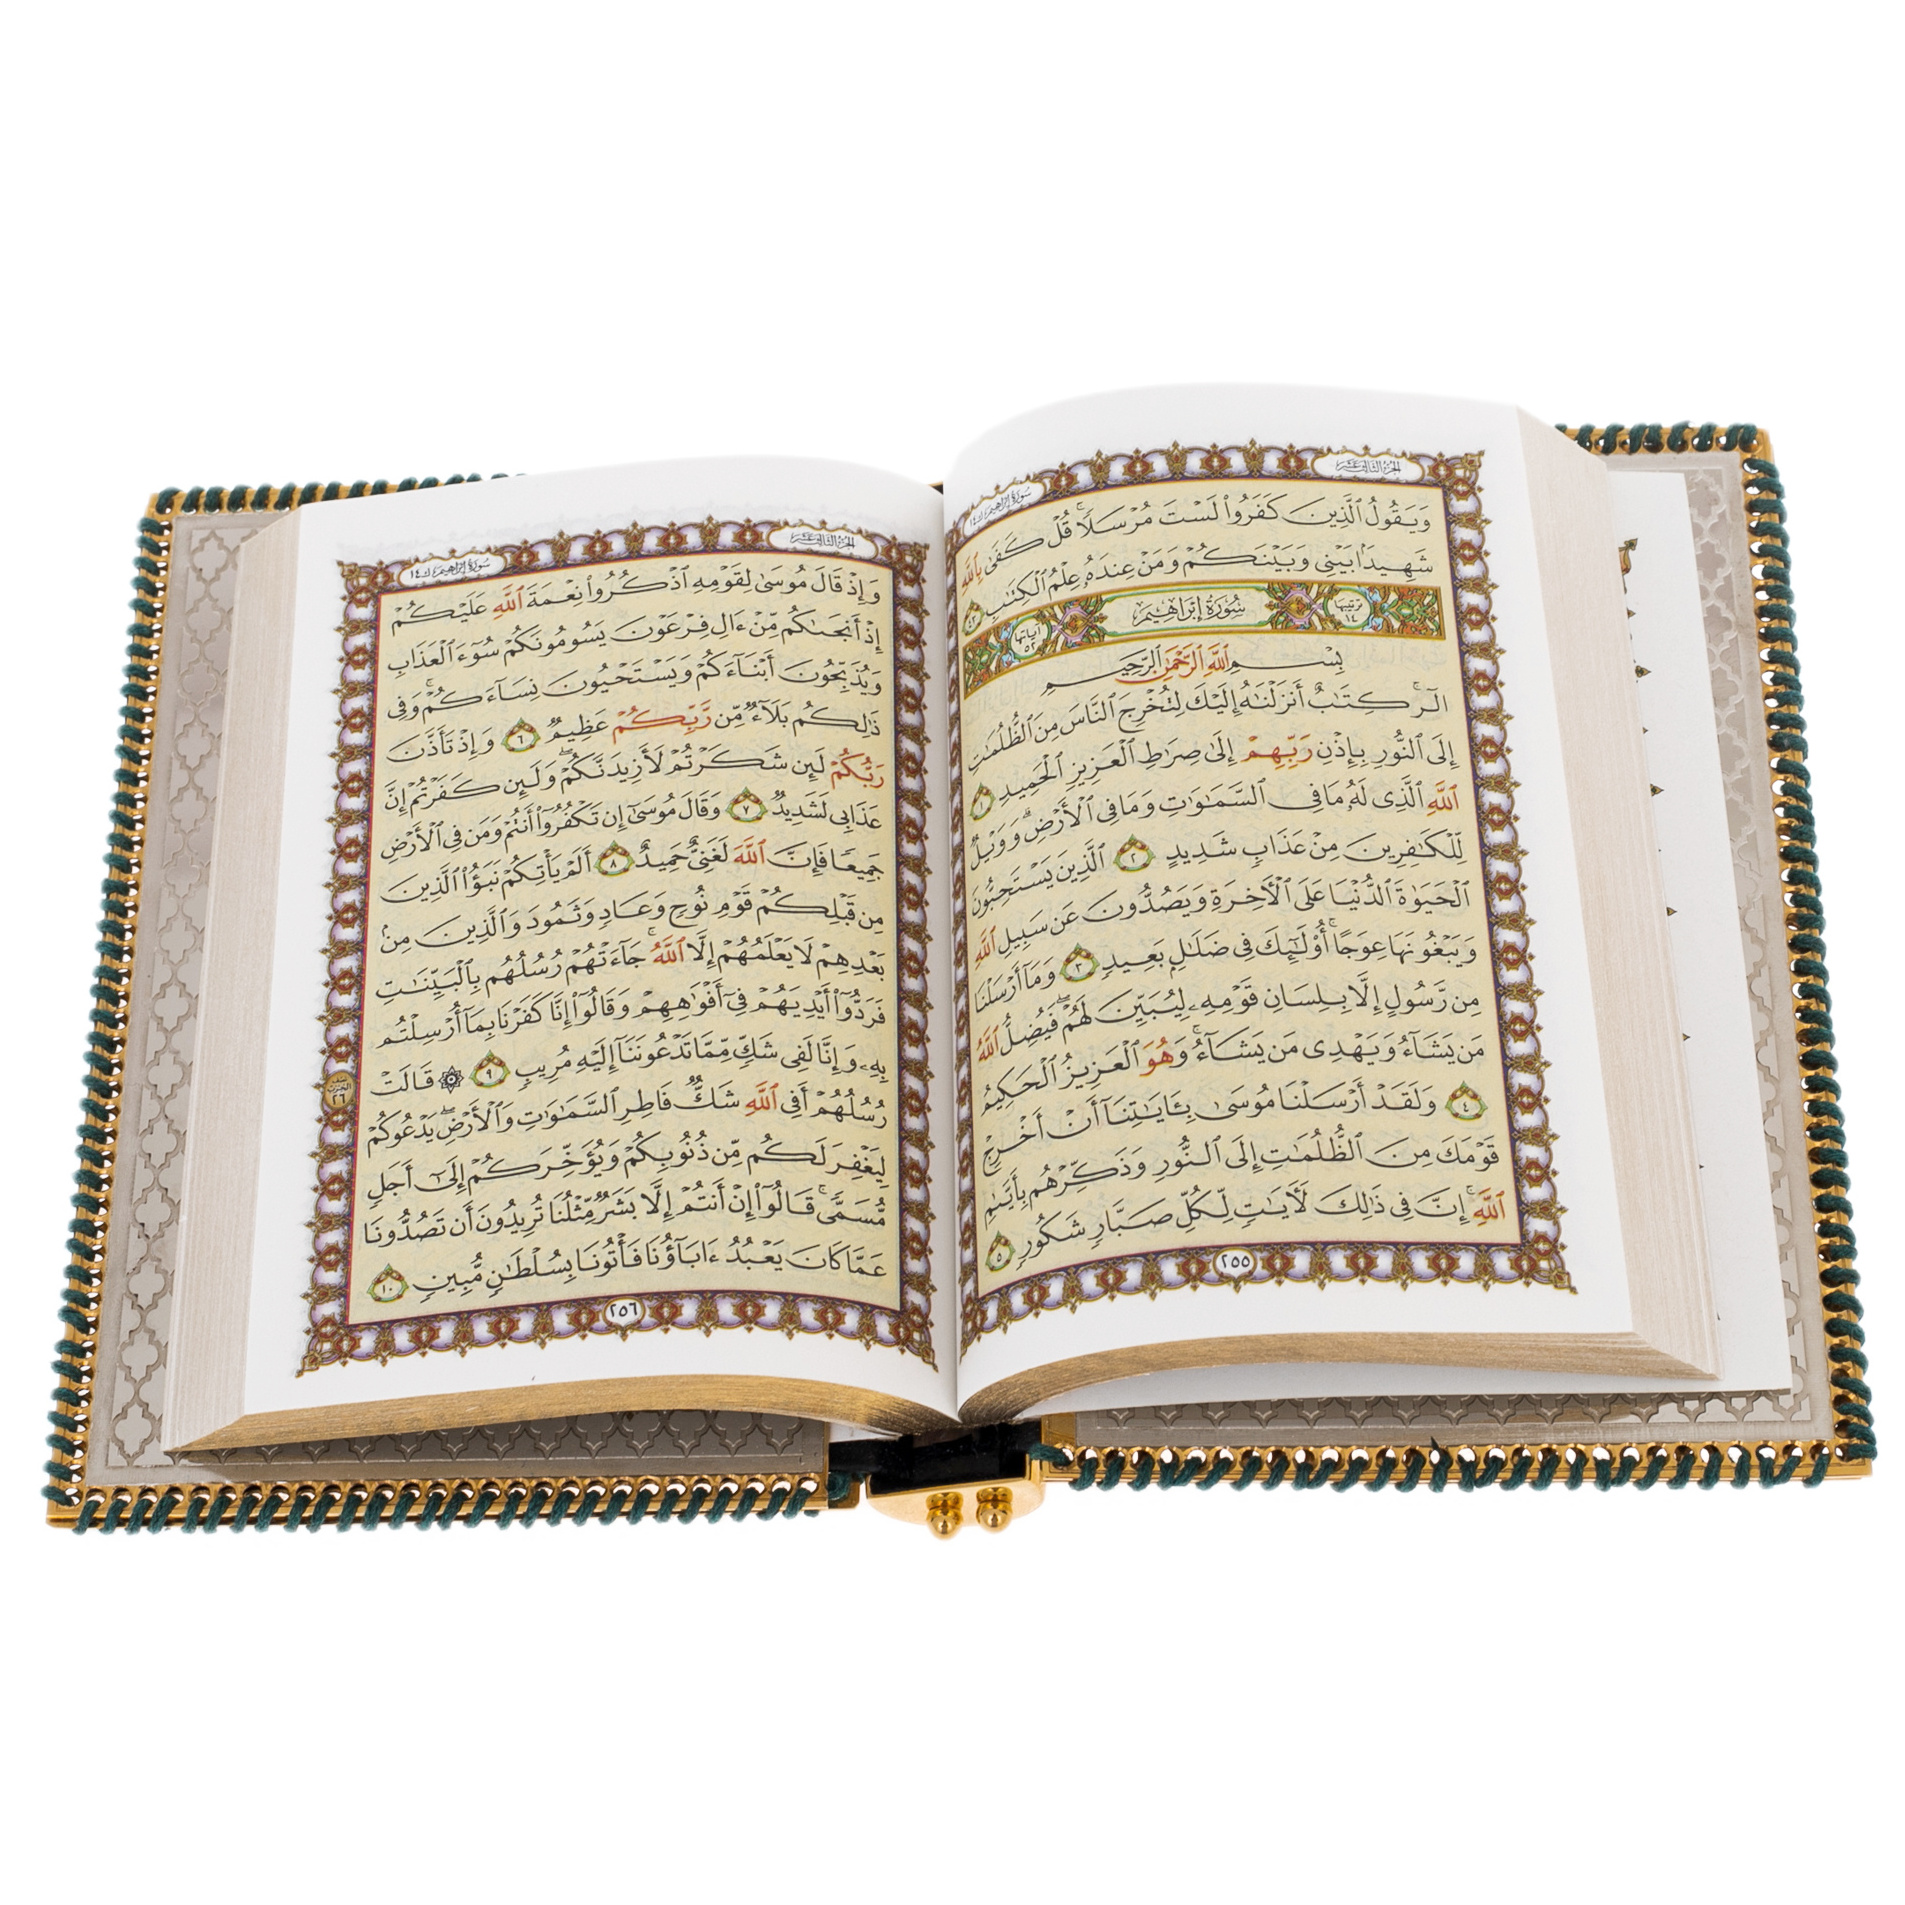 الجزء الثالث عشر
سورة إبراهيم ك ١٤
وَيَقُولُ ٱلَّذِينَ كَفَرُوا۟ لَسْتَ مُرْسَلًا ۚ قُلْ كَفَىٰ بِٱللَّهِ
شَهِيدًۢا بَيْنِى وَبَيْنَكُمْ وَمَنْ عِندَهُۥ عِلْمُ ٱلْكِتَٰبِ ٤٣
ترتيبها ١٤ سُورَةُ إِبْرَاهِيم آياتها ٥٢
بِسْمِ ٱللَّهِ ٱلرَّحْمَٰنِ ٱلرَّحِيمِ
الٓر ۚ كِتَٰبٌ أَنزَلْنَٰهُ إِلَيْكَ لِتُخْرِجَ ٱلنَّاسَ مِنَ ٱلظُّلُمَٰتِ
إِلَى ٱلنُّورِ بِإِذْنِ رَبِّهِمْ إِلَىٰ صِرَٰطِ ٱلْعَزِيزِ ٱلْحَمِيدِ ١
ٱللَّهِ ٱلَّذِى لَهُۥ مَا فِى ٱلسَّمَٰوَٰتِ وَمَا فِى ٱلْأَرْضِ ۗ وَوَيْلٌ
لِّلْكَٰفِرِينَ مِنْ عَذَابٍ شَدِيدٍ ٢ ٱلَّذِينَ يَسْتَحِبُّونَ
ٱلْحَيَوٰةَ ٱلدُّنْيَا عَلَى ٱلْءَاخِرَةِ وَيَصُدُّونَ عَن سَبِيلِ ٱللَّهِ
وَيَبْغُونَهَا عِوَجًا ۚ أُو۟لَٰٓئِكَ فِى ضَلَٰلٍۭ بَعِيدٍ ٣ وَمَآ أَرْسَلْنَا
مِن رَّسُولٍ إِلَّا بِلِسَانِ قَوْمِهِۦ لِيُبَيِّنَ لَهُمْ ۖ فَيُضِلُّ ٱللَّهُ
مَن يَشَآءُ وَيَهْدِى مَن يَشَآءُ ۚ وَهُوَ ٱلْعَزِيزُ ٱلْحَكِيمُ
٤ وَلَقَدْ أَرْسَلْنَا مُوسَىٰ بِـَٔايَٰتِنَآ أَنْ أَخْرِجْ
قَوْمَكَ مِنَ ٱلظُّلُمَٰتِ إِلَى ٱلنُّورِ وَذَكِّرْهُم بِأَيَّىٰمِ
ٱللَّهِ ۚ إِنَّ فِى ذَٰلِكَ لَءَايَٰتٍ لِّكُلِّ صَبَّارٍ شَكُورٍ ٥
٢٥٥
الجزء الثالث عشر
سورة إبراهيم ك ١٤
وَإِذْ قَالَ مُوسَىٰ لِقَوْمِهِ ٱذْكُرُوا۟ نِعْمَةَ ٱللَّهِ عَلَيْكُمْ
إِذْ أَنجَىٰكُم مِّنْ ءَالِ فِرْعَوْنَ يَسُومُونَكُمْ سُوٓءَ ٱلْعَذَابِ
وَيُذَبِّحُونَ أَبْنَآءَكُمْ وَيَسْتَحْيُونَ نِسَآءَكُمْ ۚ وَفِى
ذَٰلِكُم بَلَآءٌ مِّن رَّبِّكُمْ عَظِيمٌ ٦ وَإِذْ تَأَذَّنَ
رَبُّكُمْ لَئِن شَكَرْتُمْ لَأَزِيدَنَّكُمْ ۖ وَلَئِن كَفَرْتُمْ إِنَّ
عَذَابِى لَشَدِيدٌ ٧ وَقَالَ مُوسَىٰٓ إِن تَكْفُرُوٓا۟ أَنتُمْ وَمَن فِى ٱلْأَرْضِ
جَمِيعًا فَإِنَّ ٱللَّهَ لَغَنِىٌّ حَمِيدٌ ٨ أَلَمْ يَأْتِكُمْ نَبَؤُا۟ ٱلَّذِينَ
مِن قَبْلِكُمْ قَوْمِ نُوحٍ وَعَادٍ وَثَمُودَ وَٱلَّذِينَ مِنۢ
بَعْدِهِمْ لَا يَعْلَمُهُمْ إِلَّا ٱللَّهُ ۚ جَآءَتْهُمْ رُسُلُهُم بِٱلْبَيِّنَٰتِ
فَرَدُّوٓا۟ أَيْدِيَهُمْ فِىٓ أَفْوَٰهِهِمْ وَقَالُوٓا۟ إِنَّا كَفَرْنَا بِمَآ أُرْسِلْتُم
بِهِۦ وَإِنَّا لَفِى شَكٍّ مِّمَّا تَدْعُونَنَآ إِلَيْهِ مُرِيبٍ ٩ ۞ قَالَتْ
رُسُلُهُمْ أَفِى ٱللَّهِ شَكٌّ فَاطِرِ ٱلسَّمَٰوَٰتِ وَٱلْأَرْضِ ۖ يَدْعُوكُمْ
لِيَغْفِرَ لَكُم مِّن ذُنُوبِكُمْ وَيُؤَخِّرَكُمْ إِلَىٰٓ أَجَلٍ
مُّسَمًّى ۚ قَالُوٓا۟ إِنْ أَنتُمْ إِلَّا بَشَرٌ مِّثْلُنَا تُرِيدُونَ أَن تَصُدُّونَا
عَمَّا كَانَ يَعْبُدُ ءَابَآؤُنَا فَأْتُونَا بِسُلْطَٰنٍ مُّبِينٍ ١٠
الحزب ٢٦
٢٥٦